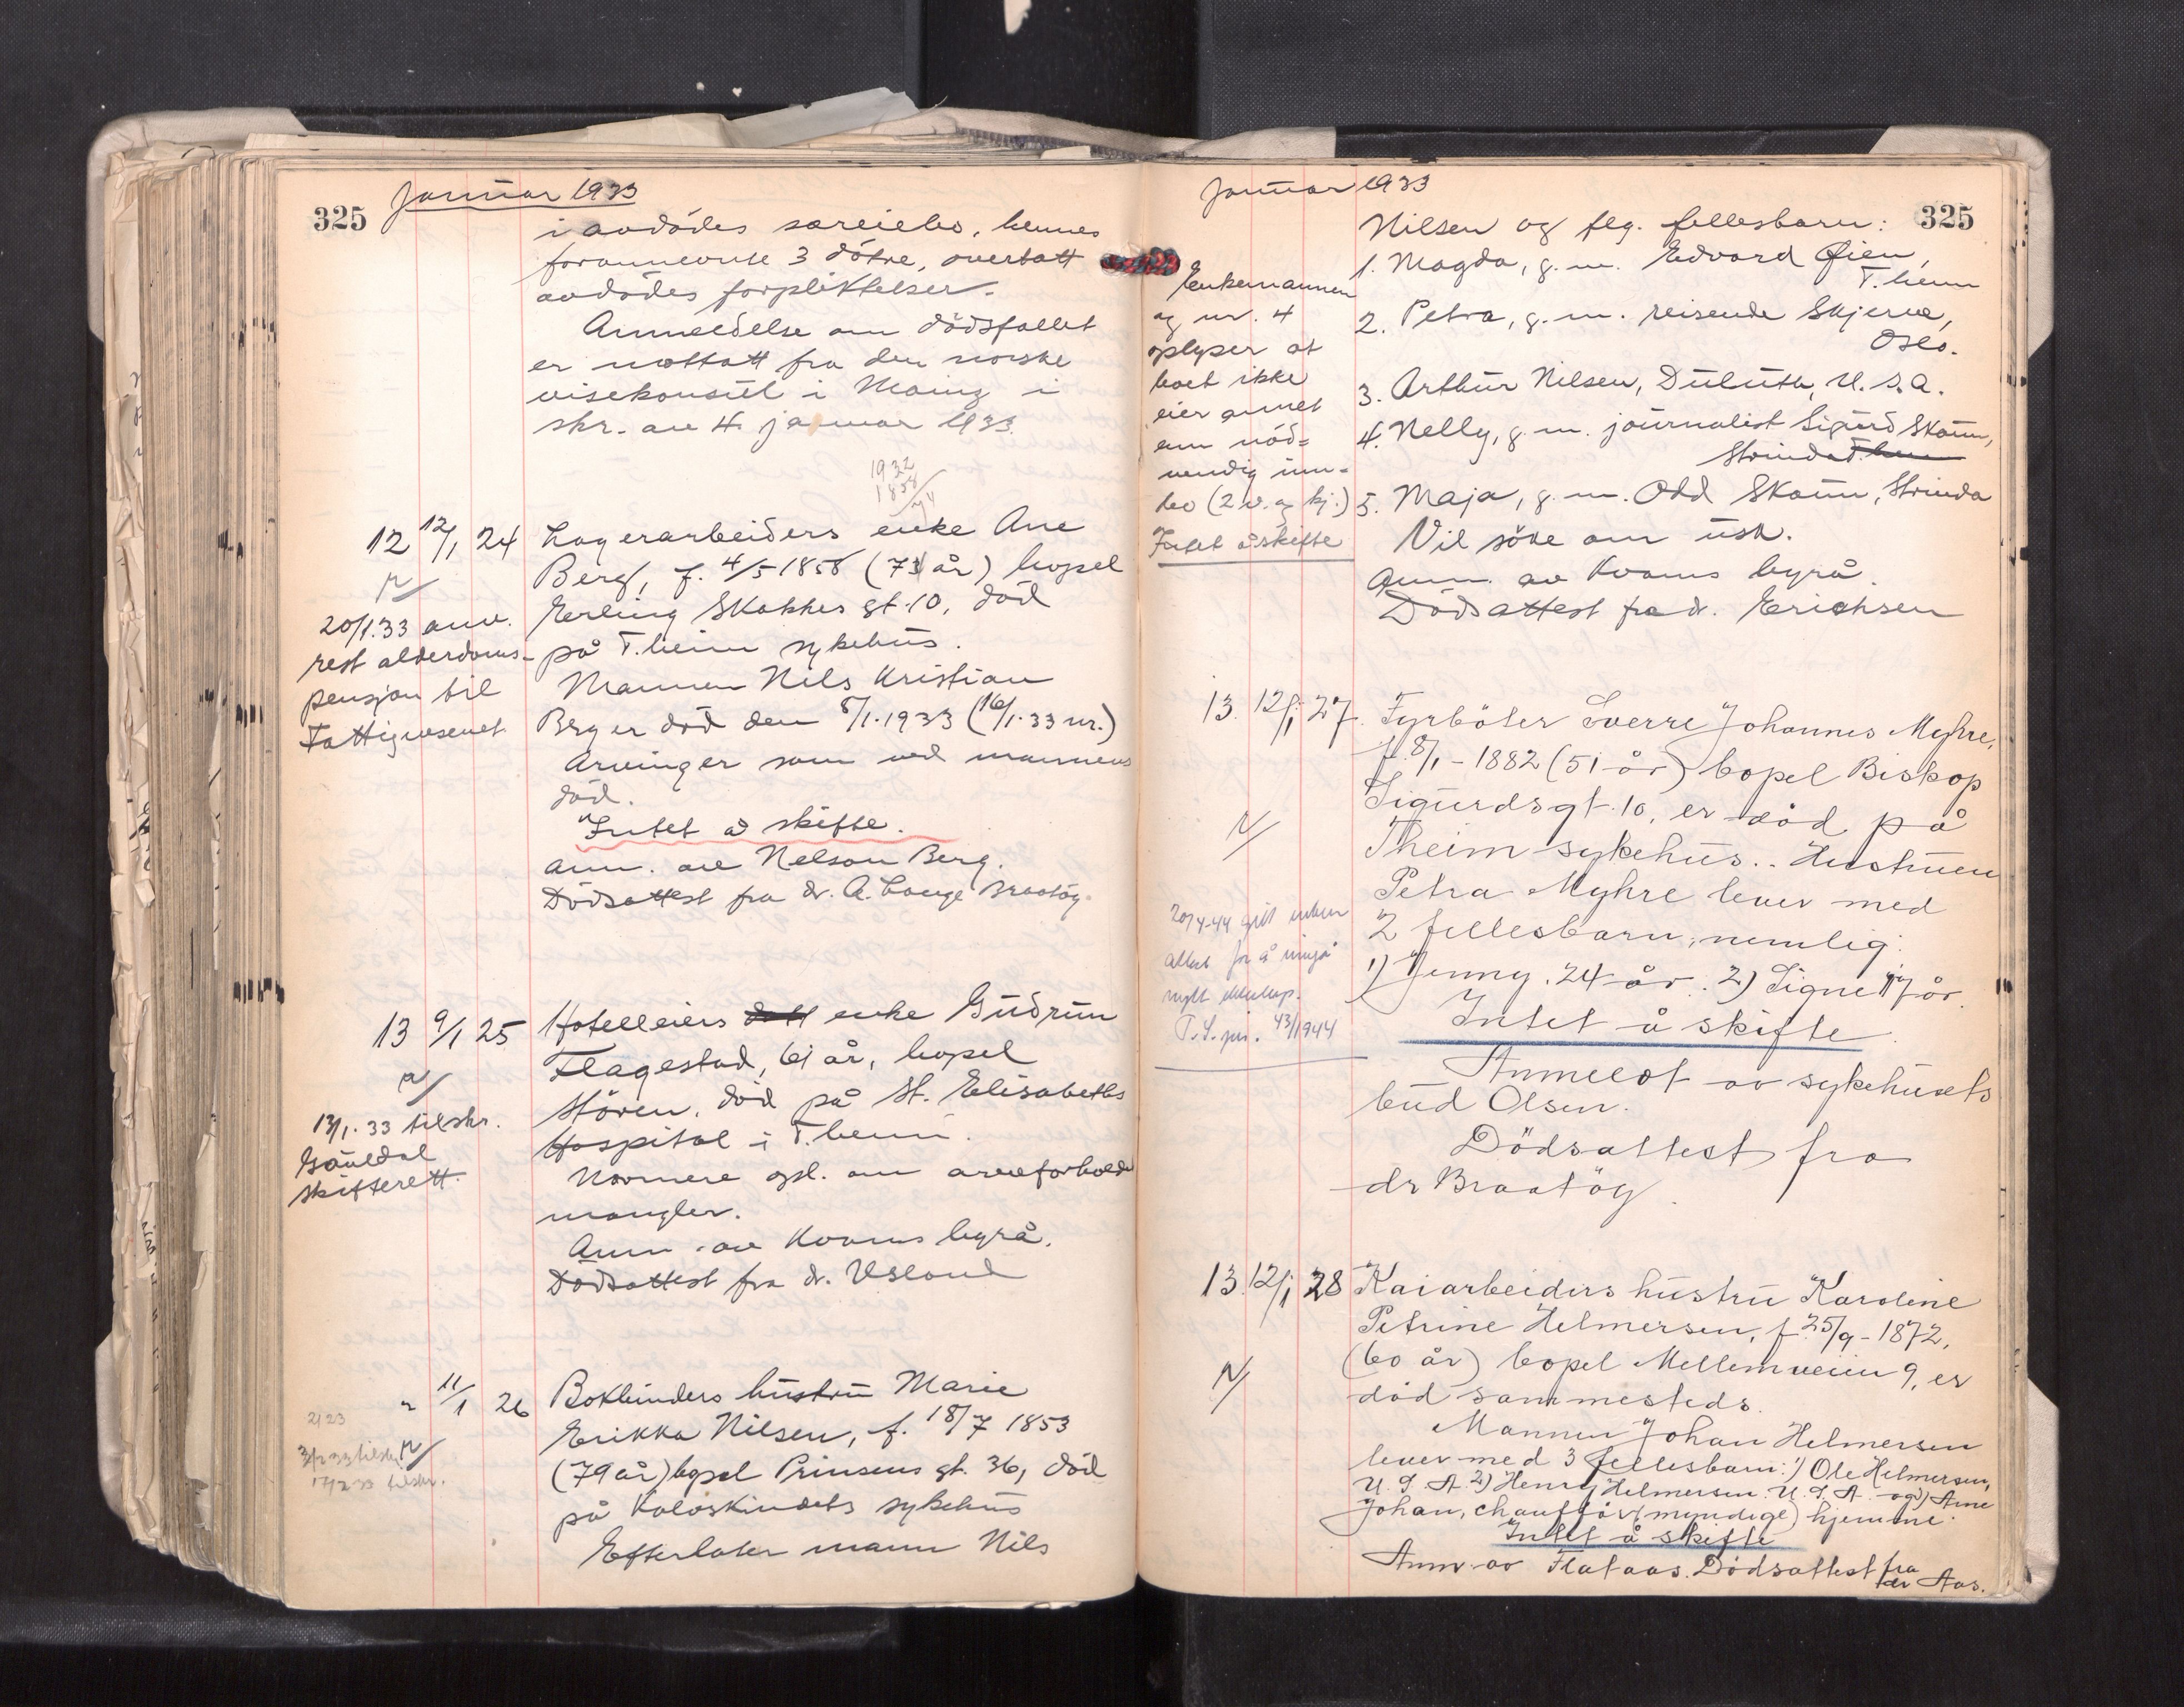 Januar 1933
325
i avdödes særeiebo, hennes
forannevnte 3 dötre, overtatt
avdödes forpliktelser.
Anmeldelse om dödsfallet
er mottatt fra den norske
visekonsul i Mainz i
skr. av 4. januar 1933.
1932
1858
74
12 12/1 24 Lagerarbeiders enke Ane
Berg, f. 4/5 1858 (74 år) bopel
Erling Skakkes gt. 10, död
på T.heim sykehus.
Mannen Nils Kristian
Berg er död den 8/1.1933 (16/1.33 nr.)
Arvinger som ved mannens
död.
Intet å skifte.
Anm. av Nelson Berg.
Dödsattest fra dr. A. Lange Braatöy.
20/1.33 anv.
rest alderdoms-
pensjon til
Fattigvesenet.
13 9/1 25 Hotelleiers enke Gudrun
Flagestad, 61 år, bopel
Stören, död på St. Elisabeths
Hospital i T.heim.
Nærmere opl. om arveforhold
mangler.
Anm. av Kvams byrå.
Dödsattest fra dr. Usland
13/1.33 tilskr.
Gauldal
skifterett.
" 11/1 26 Bokbinders hustru Marie
Erikka Nilsen, f. 18/7 1853
(79 år) bopel Prinsens gt. 36, död
på Kalvskindets sykehus
Efterlater mann Nils
2123
3/2 33 tilskr.
17/2 33 tilskr.
Januar 1933
325
Nilsen og flg. fellesbarn:
1. Magda, g.m. Edvard Øien,
T.heim
2. Petra, g.m. reisende Skjerve,
Oslo.
3. Arthur Nilsen, Duluth, U.S.A.
4. Nelly, g.m. journalist Sigurd Skaun,
Strinda T.heim
5. Maja, g.m. Odd Skaun, Strinda
Vil söke om usk.
Anm. av Kvams byrå.
Dödsattest fra dr. Erichsen
Enkemannen
og nr. 4
oplyser at
boet ikke
eier annet
enn nöd=
vendig inn-
bo (2 v. og kj.)
Intet å skifte
13. 12/1 27. Fyrböter Sverre Johannes Myhre,
f. 8/1 - 1882 (51 år) bopel Biskop
Sigurdsgt. 10, er död på
Theim sykehus.. Hustruen
Petra Myhre lever med
2 fellesbarn, nemlig:
1) Jenny. 24 år. 2) Signe 17 år.
Intet å skifte.
Anmeldt av sykehusets
bud Olsen.
Dödsattest fra
dr Braatöy.
20/4-44 gitt enken
attest for å inngå
nytt ekteskap.
T.S. jnr. 43/1944
13. 12/1 28 Kaiarbeiders hustru Karoline
Petrine Helmersen, f. 25/9 - 1872,
(60 år) bopel Mellemveien 9, er
död sammesteds.
Mannen Johan Helmersen
lever med 3 fellesbarn: 1) Ole Helmersen,
U.S.A. 2) Henry Helmersen. U.S.A. og 3) Arne
Johan, chaufför (myndige) hjemme.
Intet å skifte
Anm. av Flataas. Dödsattest fra
dr Aas.